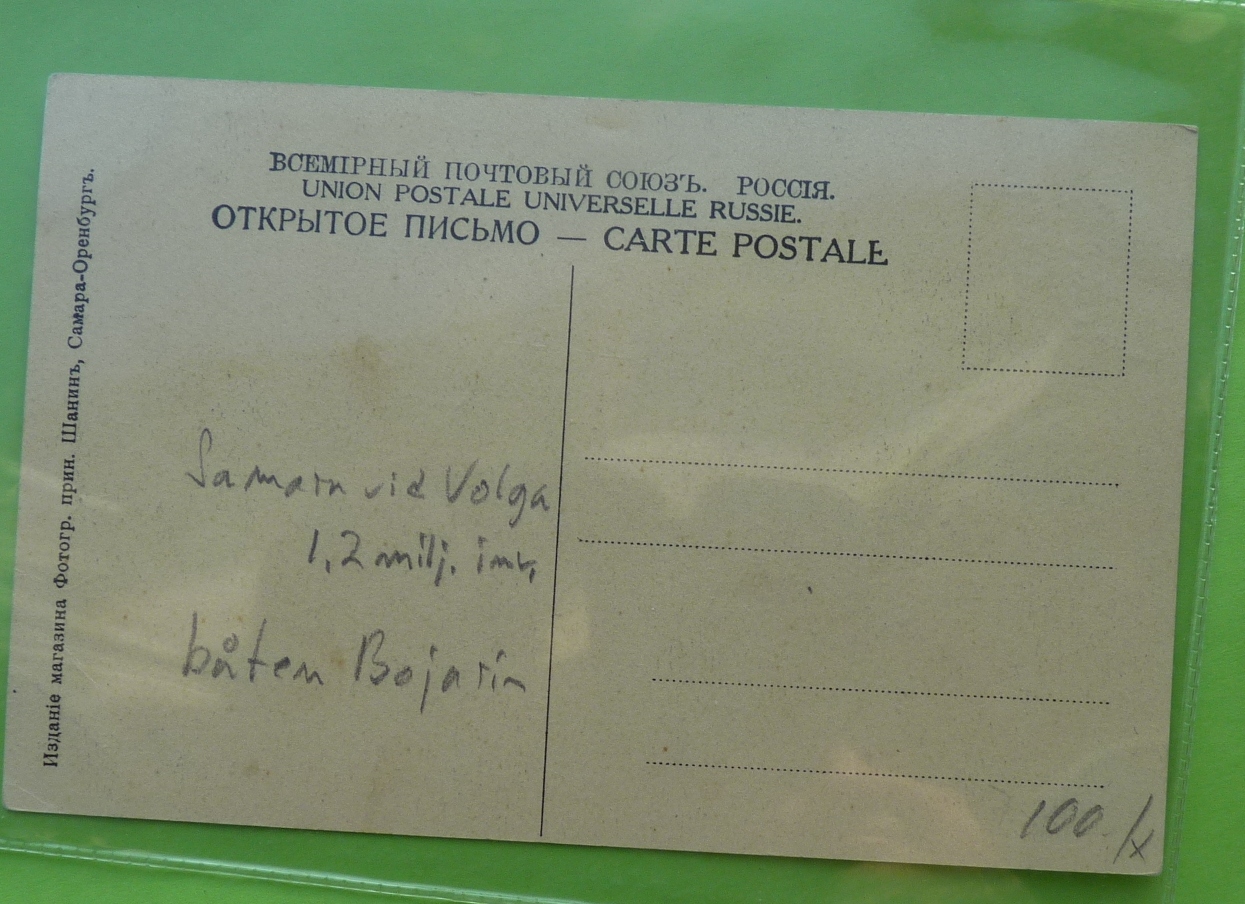 ВСЕМІРНЫЙ ПОЧТОВЫЙ СОЮЗЪ. РОССІЯ.
UNION POSTALE UNIVERSELLE RUSSIE.
ОТКРЫТОЕ ПИСЬМО — CARTE POSTALE
Изданіе магазина Фотогр. прин. Шанинъ, Самара-Оренбургъ.
Samara vid Volga
1,2 milj. inv.
båten Bojarin
100.